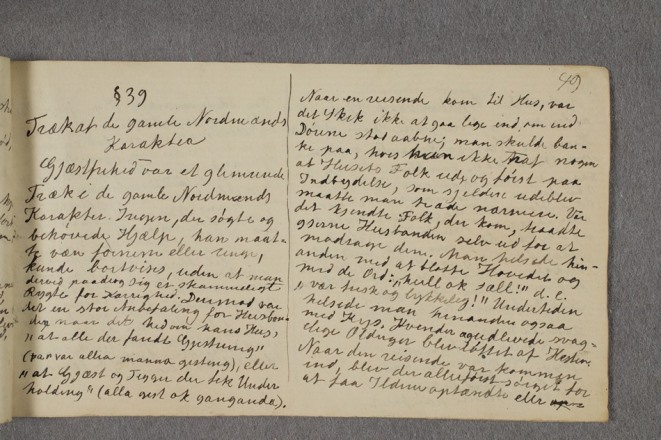 §39
Træk af de gamle Nordmænds
Karakter
Gjæstfrihed var et glimrende
Træk i de gamle Nordmænds
Karakter. Ingen, der søgte og
behøvede Hjælp, han maat-
te være fornem eller ringe,
kunde bortvises, uden at man
derved paadrog sig et skammeligt
Rygte for Karrighed. Derimod var
det en stor Anbefaling for Husbon-
den naar det hed om hans Hus,
"at alle der fandt Gjestning"
(var var allra manna gesting), eller
"at Gjæst og Tigger der fik Under
holdning" (alla gest ok ganganda).
49
Naar en reisende kom til Hus, var
det Skik ikke at gaa lige ind, om end
Dörene stod aabne; man skulde ban-
ke paa, hvis ikke traf nogen
af Husets Folk ude, og först paa
Indbydelse, som sjelden udeblev
maatte man træde nærmere. Var
det kjendte Folk, der kom, traadte
gjerne Husbonden selv ud for at
modtage dem. Man hilsede hin-
anden med at blotte Hovedet og
med de Ord: "heill ok sæll!" d. e.
"vær frisk og lykkelig!" Undertiden
hilsede man hinanden ogsaa
med Kys. Kvinder svag-
elige Oldinger blev löftet af Hesten.
Naar den reisende var kommen
ind, blev der allerförst sörget for
at faa Ilden optændt eller